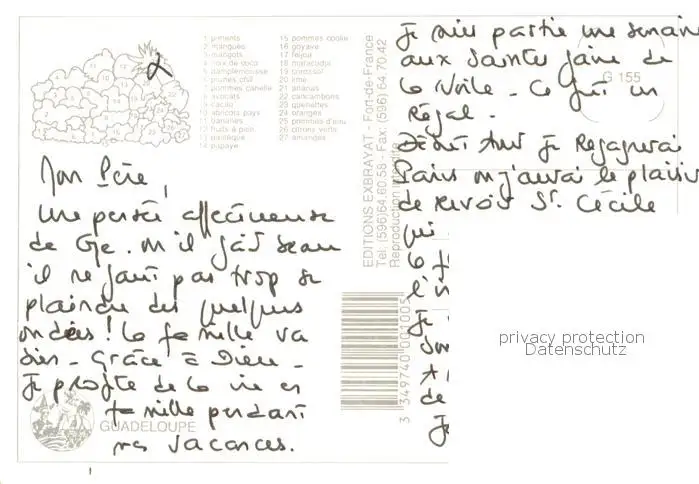 1 piments
2 mangues
3 mangots
4 noix de coco
5 pamplemousse
6 prunes chili
7 pommes canelle
8 avocats
9 cacao
10 abricots pays
11 bananes
12 fruits à pain
13 pastèque
14 papaye
15 pommes cochir
16 goyave
17 feijoa
18 maracudja
19 corossol
20 lime
21 ananas
22 carambombes
23 quenettes
24 oranges
25 pommes d'eau
26 citrons verts
27 oranges
Mon Père,
Une pensée affectueuse
de Gpe. où il fait beau
il ne faut pas trop se
plaindre des quelques
ondées! La famille va
bien - Grâce à Dieu -
Je profite de la vie en
famille pendant
mes vacances.
GUADELOUPE
EDITIONS EXBRAYAT - Fort-de-France
Tel. (596) 64.60.58 - Fax: (596) 64.70.42
Reproduction interdite
3 349740 001005
Je suis partie une semaine
aux Saintes faire de
la voile - Ce fut un
régal.
Début Août je regagnerai
Paris où j'aurai le plaisir
de revoir Ste Cécile
qui
la
Je
de
G 155
privacy protection
Datenschutz